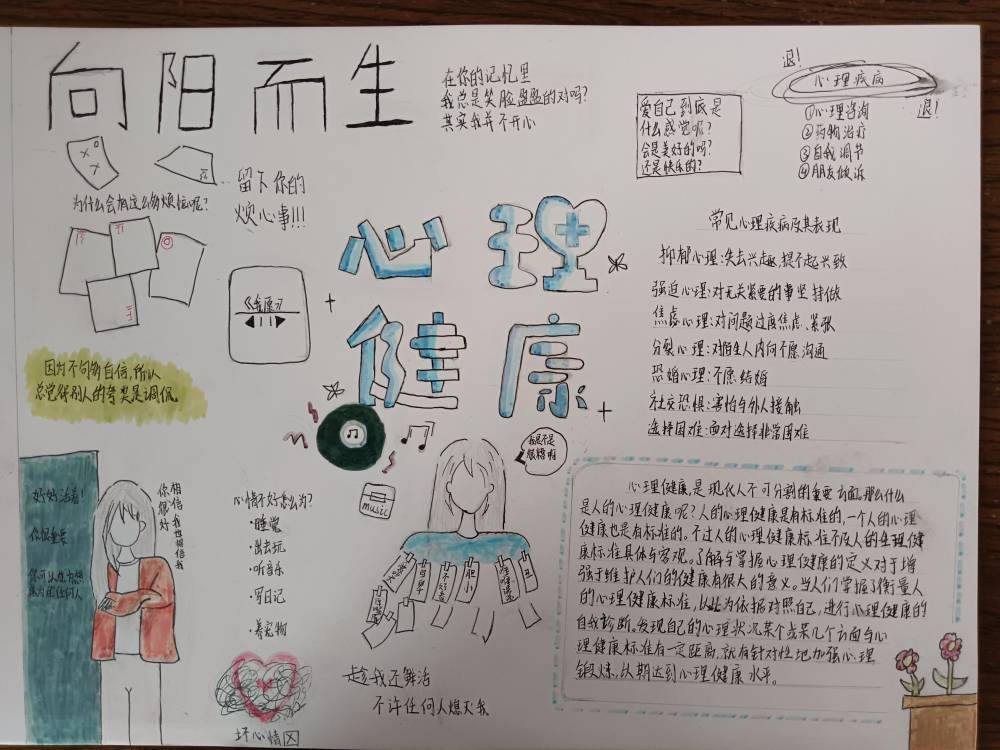 向阳而生
在你的记忆里
我总是笑脸盈盈的对吗?
其实我并不开心
爱自己到底是
什么感觉呢?
会是美好的吗?
还是快乐的?
退!
心理疾病
退!
①心理咨询
②药物治疗
③自我调节
④朋友倾诉
为什么会有这么多烦恼呢?
留下你的
烦心事!!!
心理
健康
常见心理疾病及其表现
抑郁心理:失去兴趣,提不起兴致
强迫心理:对无关紧要的事坚持做
焦虑心理:对问题过度焦虑、紧张
分裂心理:对陌生人内向不愿沟通
恐婚心理:不愿结婚
社交恐惧:害怕与外人接触
选择困难:面对选择非常困难
因为不够自信,所以
总觉得别人的夸奖是调侃
好好活着!
你很重要
你很好
相信我也相信我
心情不好怎么办?
·睡觉
·出去玩
·听音乐
·写日记
·养宠物
坏心情区
music
我是不是
很糟啊
胆小
趁我还鲜活
不许任何人熄灭我
心理健康,是现代人不可分割的重要方面,那么什么
是人的心理健康呢?人的心理健康是有标准的,一个人的心理
健康也是有标准的。不过人的心理健康标准不及人的生理健
康标准具体与客观。了解与掌握心理健康的定义对于增
强于维护人们的健康有很大的意义。当人们掌握了衡量人
的心理健康标准,以此为依据对照自己,进行心理健康的
自我诊断。发现自己的心理状况某个或某几个方面与心
理健康标准有一定距离,就有针对性地加强心理
锻炼,以期达到心理健康水平。